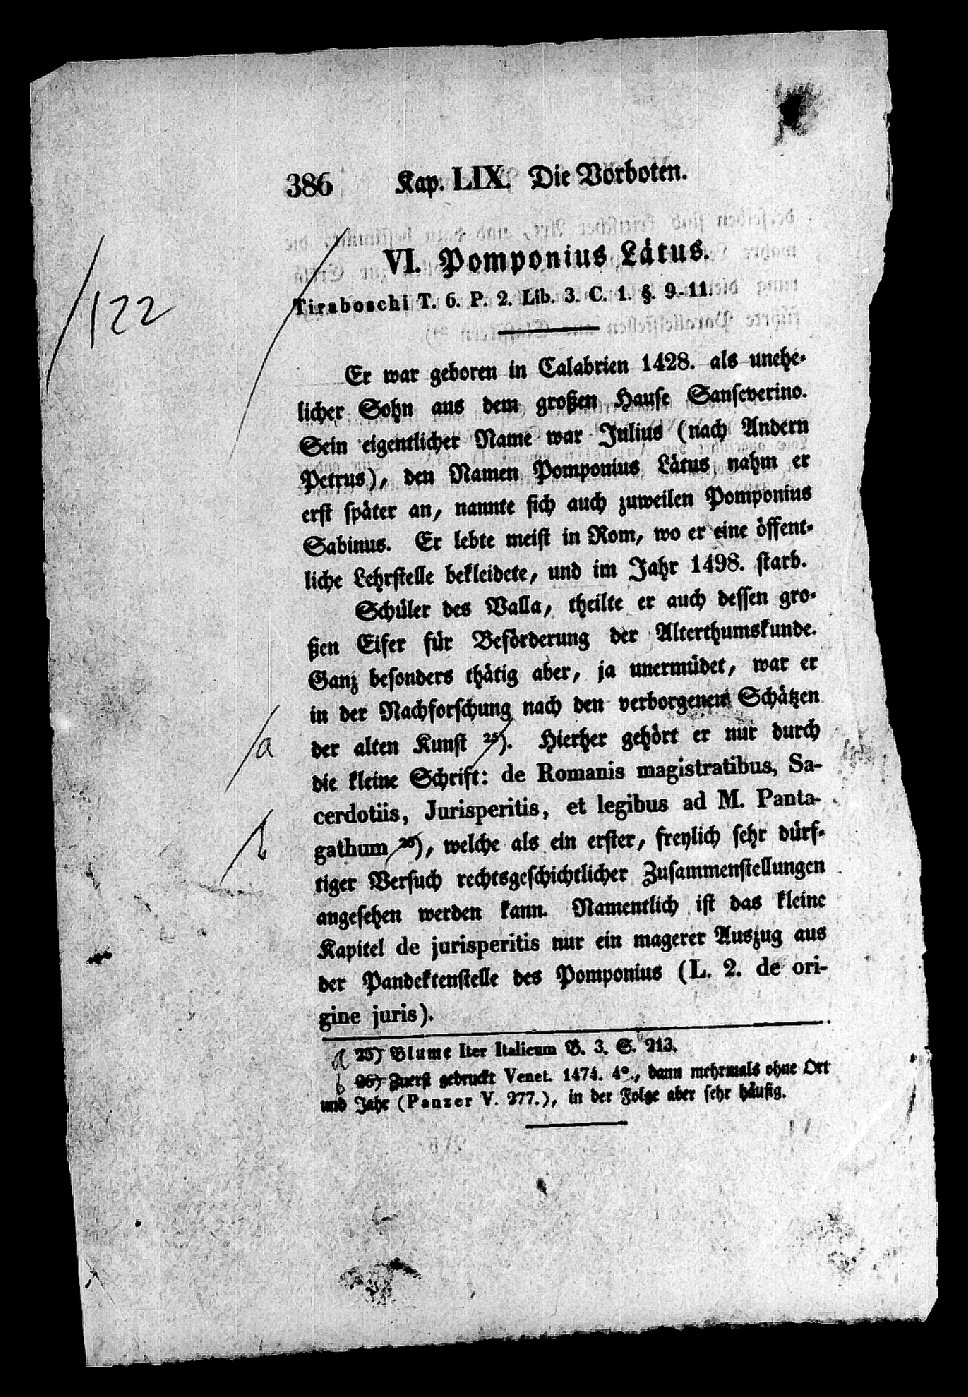 386 Kap. LIX. Die Vorboten.
VI. Pomponius Lätus.
Tiraboschi T. 6. P. 2. Lib. 3. C. 1. §. 9-11.
/122
Er war geboren in Calabrien 1428. als unehe-
licher Sohn aus dem großen Hause Sanseverino.
Sein eigentlicher Name war Julius (nach Andern
Petrus), den Namen Pomponius Lätus nahm er
erst später an, nannte sich auch zuweilen Pomponius
Sabinus. Er lebte meist in Rom, wo er eine öffent-
liche Lehrstelle bekleidete, und im Jahr 1498. starb.
Schüler des Valla, theilte er auch dessen gro-
ßen Eifer für Beförderung der Alterthumskunde.
Ganz besonders thätig aber, ja unermüdet, war er
in der Nachforschung nach den verborgenen Schätzen
der alten Kunst 25). Hierher gehört er nur durch
/a
die kleine Schrift: de Romanis magistratibus, Sa-
cerdotiis, Jurisperitis, et legibus ad M. Panta-
gathum 26), welche als ein erster, freylich sehr dürf-
/b
tiger Versuch rechtsgeschichtlicher Zusammenstellungen
angesehen werden kann. Namentlich ist das kleine
Kapitel de jurisperitis nur ein magerer Auszug aus
der Pandektenstelle des Pomponius (L. 2. de ori-
gine juris).
a 25) Blume Iter Italicum B. 3. S. 213.
b 26) Zuerst gedruckt Venet. 1474. 4°., dann mehrmals ohne Ort
und Jahr (Panzer V. 277.), in der Folge aber sehr häufig.